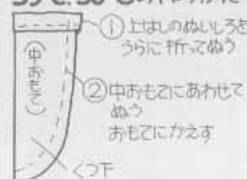 ①上はしのぬいしろを
うらに折ってぬう
(中おもて)
②中おもてにあわせて
ぬう
おもてにかえす
くつ下